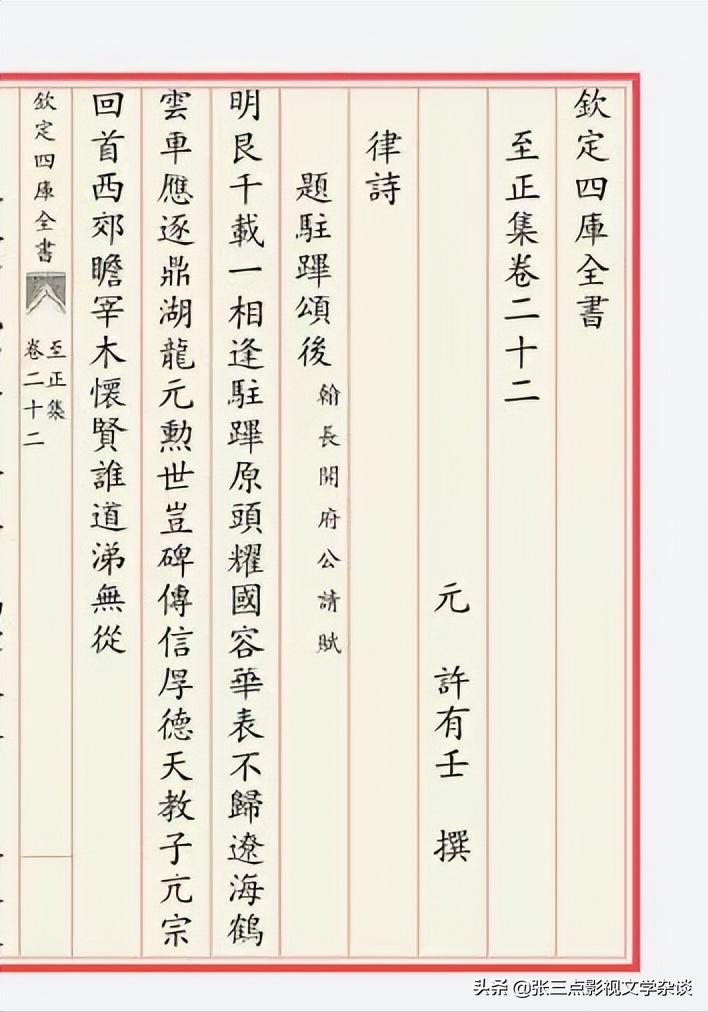 欽定四庫全書
至正集卷二十二
元 許有壬 撰
律詩
題駐蹕頌後 翰長開府公請賦
明良千載一相逢駐蹕原頭耀國容華表不歸遼海鶴
雲車應逐鼎湖龍元勲世豈碑傳信厚德天教子亢宗
回首西郊瞻宰木懷賢誰道涕無從
欽定四庫全書
至正集
卷二十二
头条 @张三点影视文学杂谈